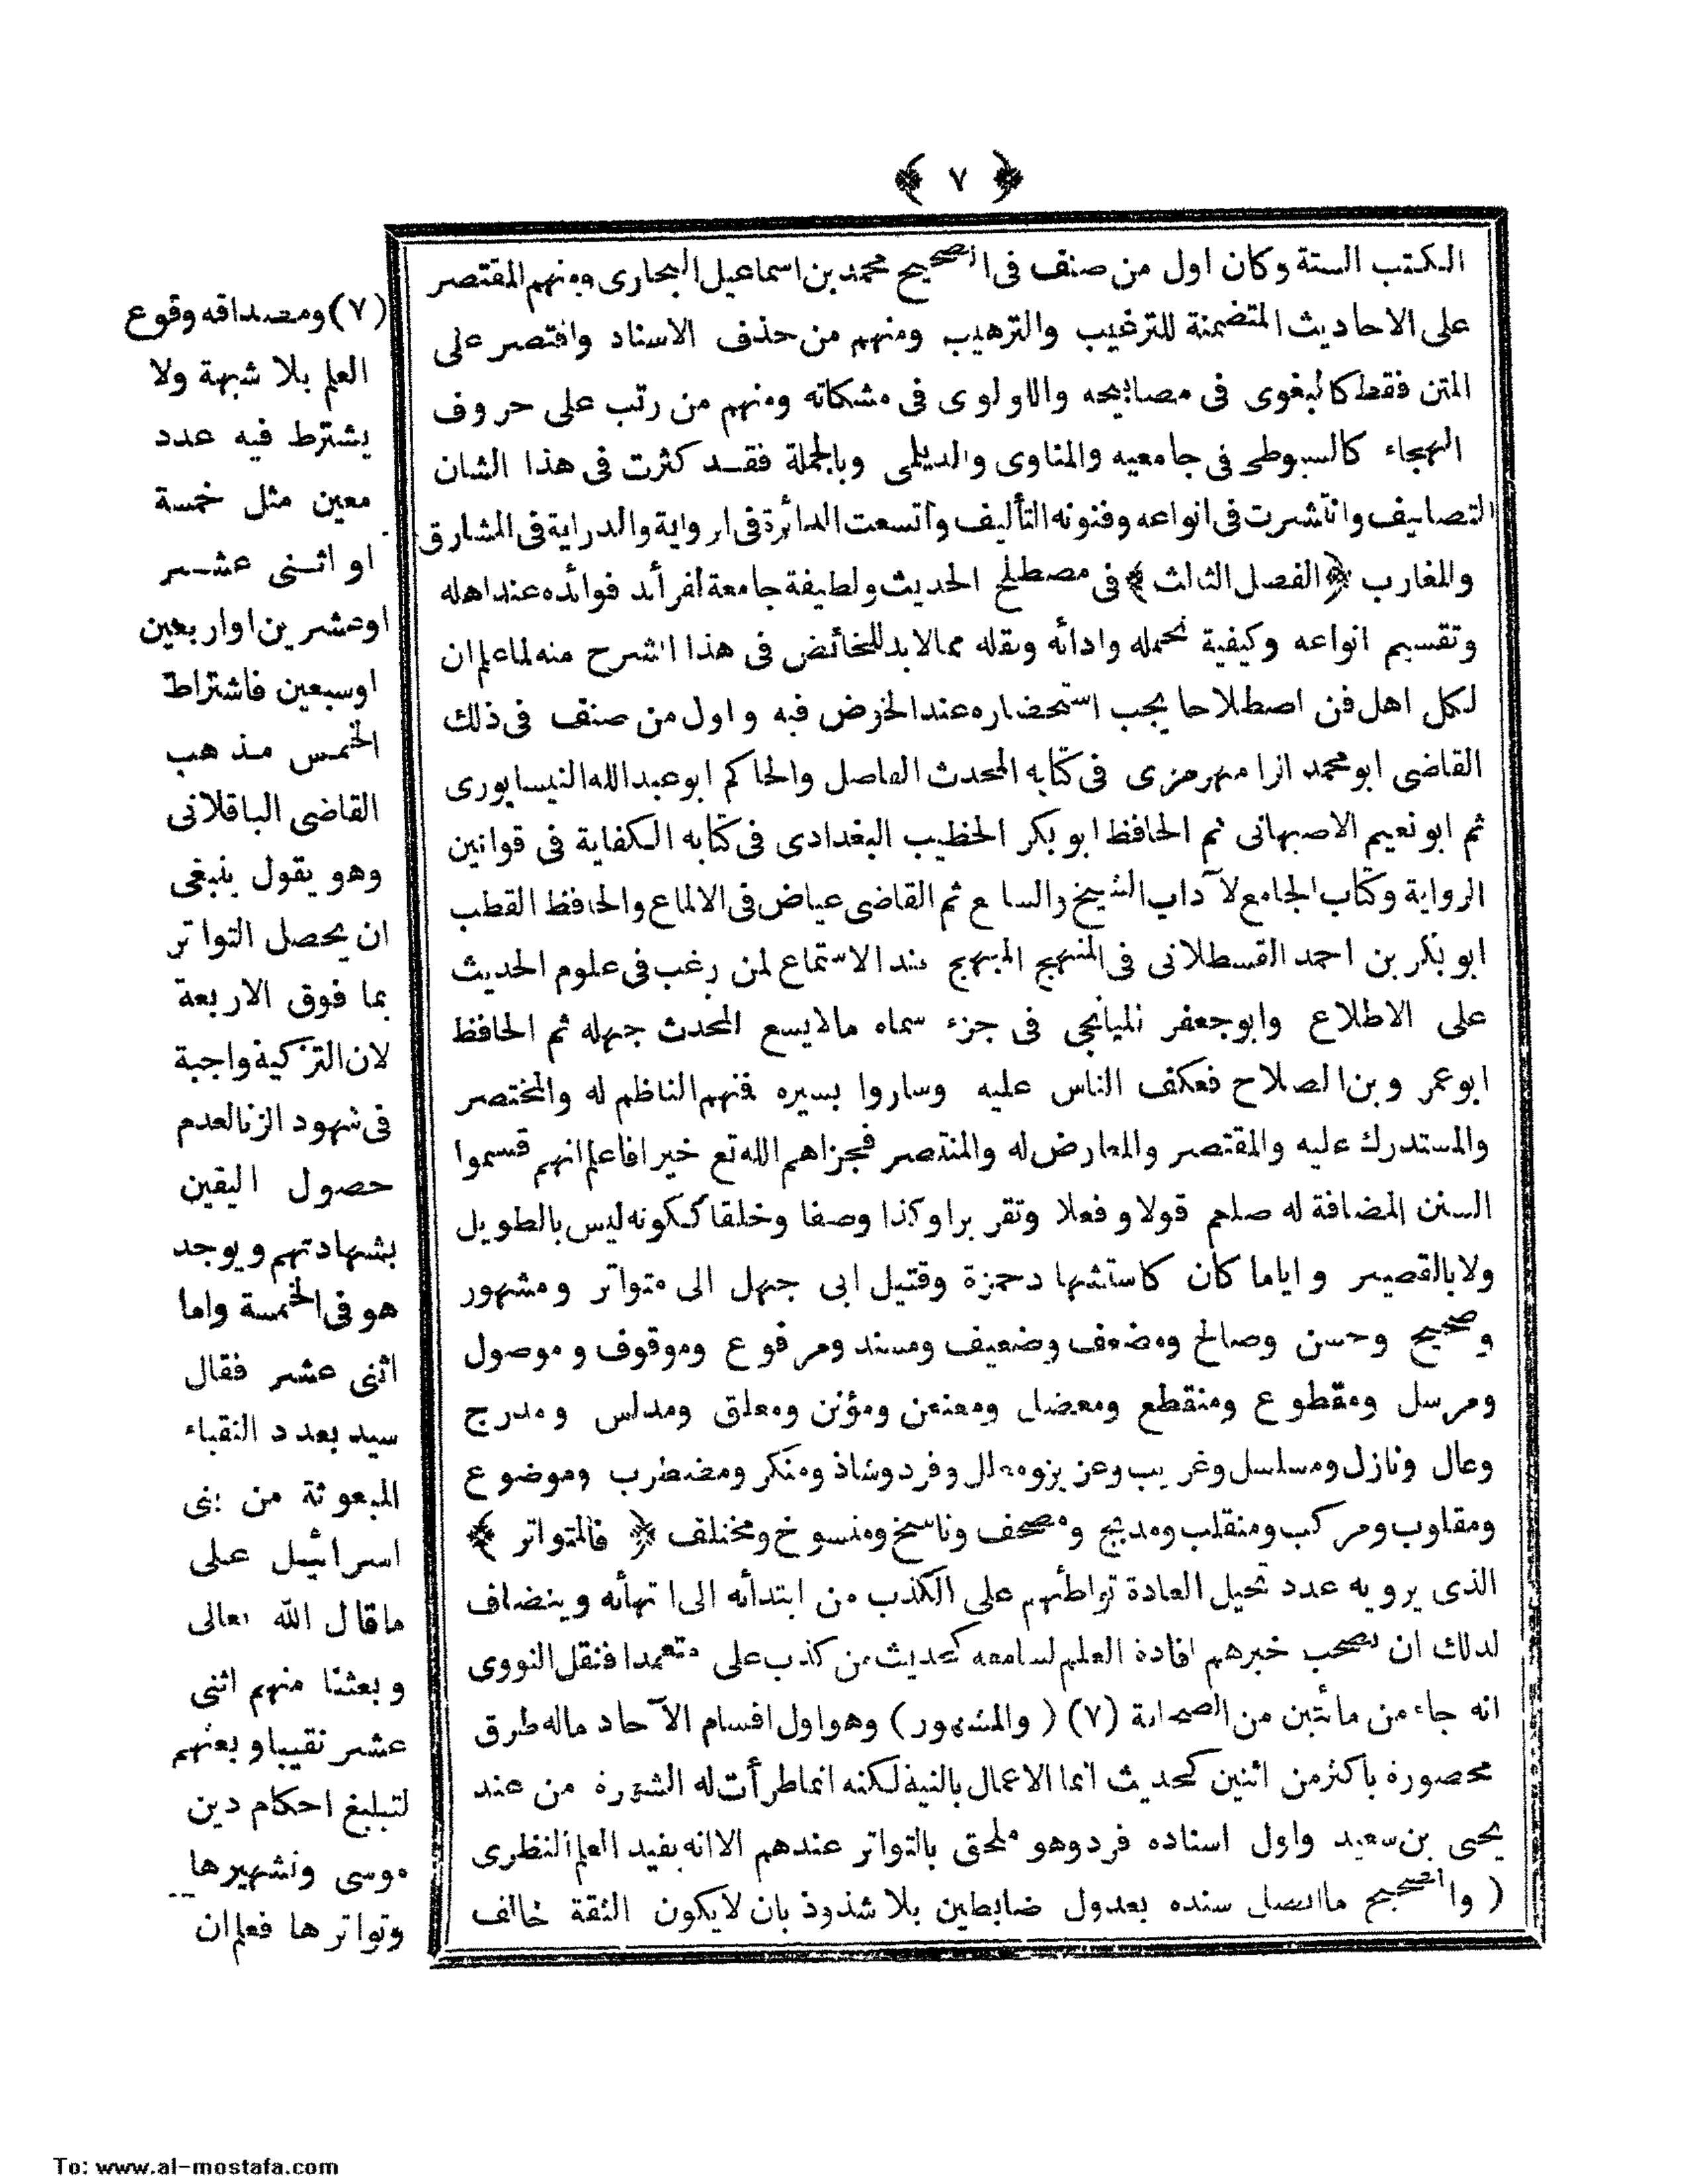 ﴿ ٧ ﴾
الكتب الستة وكان اول من صنف فى الصحيح محمد بن اسماعيل البخارى ومنهم المقتصر
على الاحاديث المتضمنة للترغيب والترهيب ومنهم من حذف الاسناد واقتصر على
المتن فقط كالبغوى فى مصابيحه واللاولوى فى مشكاته ومنهم من رتب على حروف
الهجاء كالسيوطى فى جامعيه والمناوى والديلمى وبالجملة فقد كثرت فى هذا الشان
التصانيف وانتشرت فى انواعه وفنونه التأليف واتسعت الدائرة فى الرواية والدراية فى المشارق
والمغارب ﴿ الفصل الثالث ﴾ فى مصطلح الحديث ولطيفة جامعة لفرائد فوائده عند اهله
وتقسيم انواعه وكيفية تحمله وادائه ونقله مما لابد للخائض فى هذا الشرح منه لما علم ان
لكل اهل فن اصطلاحا يجب استحضاره عند الخوض فيه واول من صنف فى ذلك
القاضى ابو محمد الرامهرمزى فى كتابه المحدث الفاصل والحاكم ابو عبد الله النيسابورى
ثم ابو نعيم الاصبهانى ثم الحافظ ابو بكر الخطيب البغدادى فى كتابه الكفاية فى قوانين
الرواية وكتاب الجامع لآداب الشيخ والسامع ثم القاضى عياض فى الالماع والحافظ القطب
ابو بكر بن احمد القسطلانى فى المنهج المبهج عند الاستماع لمن رغب فى علوم الحديث
على الاطلاع وابو جعفر الميانجى فى جزء سماه مالا يسع المحدث جهله ثم الحافظ
ابو عمر وبن الصلاح فعكف الناس عليه وساروا بسيره فمنهم الناظم له والمختصر
والمستدرك عليه والمقتصر والمعارض له والمنتصر فجزاهم الله تع خيرا فاعلم انهم قسموا
السنن المضافة له صلعم قولا وفعلا وتقريرا وكذا وصفا وخلقا ككونه ليس بالطويل
ولا بالقصير واياما كان كاستشهاد حمزة وقتيل ابى جهل الى متواتر ومشهور
وصحيح وحسن وصالح ومضعف وضعيف ومسند ومرفوع وموقوف وموصول
ومرسل ومقطوع ومنقطع ومعضل ومعنعن ومؤنن ومعلق ومدلس ومدرج
وعال ونازل ومسلسل وغريب وعزيز ومعلل وفرد وشاذ ومنكر ومضطرب وموضوع
ومقلوب ومركب ومنقلب ومدبج ومصحف وناسخ ومنسوخ ومختلف ﴿ فالمتواتر ﴾
الذى يرويه عدد تحيل العادة تواطئهم على الكذب من ابتدائه الى انتهائه وينضاف
لذلك ان يصحب خبرهم افادة العلم لسامعه كحديث من كذب على متعمدا فنقل النووى
انه جاء من مائتين من الصحابة (٧) ( والمشهور ) وهو اول اقسام الآحاد ماله طرق
محصورة باكثر من اثنين كحديث انما الاعمال بالنية لكنه انما طرأت له الشهرة من عند
يحيى بن سعيد واول اسناده فرد وهو ملحق بالتواتر عندهم الا انه يفيد العلم النظرى
( والصحيح ما اتصل سنده بعدول ضابطين بلا شذوذ بان لا يكون الثقة خالف
(٧) ومصداقه وقوع
العلم بلا شبهة ولا
يشترط فيه عدد
معين مثل خمسة
او اثنى عشر
او عشرين او اربعين
او سبعين فاشتراط
الخمس مذهب
القاضى الباقلانى
وهو يقول ينبغى
ان يحصل التواتر
بما فوق الاربعة
لان التزكية واجبة
فى شهود الزنا لعدم
حصول اليقين
بشهادتهم ويوجد
هو فى الخمسة واما
اثنى عشر فقال
سيد بعدد النقباء
المبعوثة من بنى
اسرائيل على
ما قال الله تعالى
وبعثنا منهم اثنى
عشر نقيبا وبعثهم
لتبليغ احكام دين
موسى وتشهيرها
وتواترها فعلم ان
To: www.al-mostafa.com